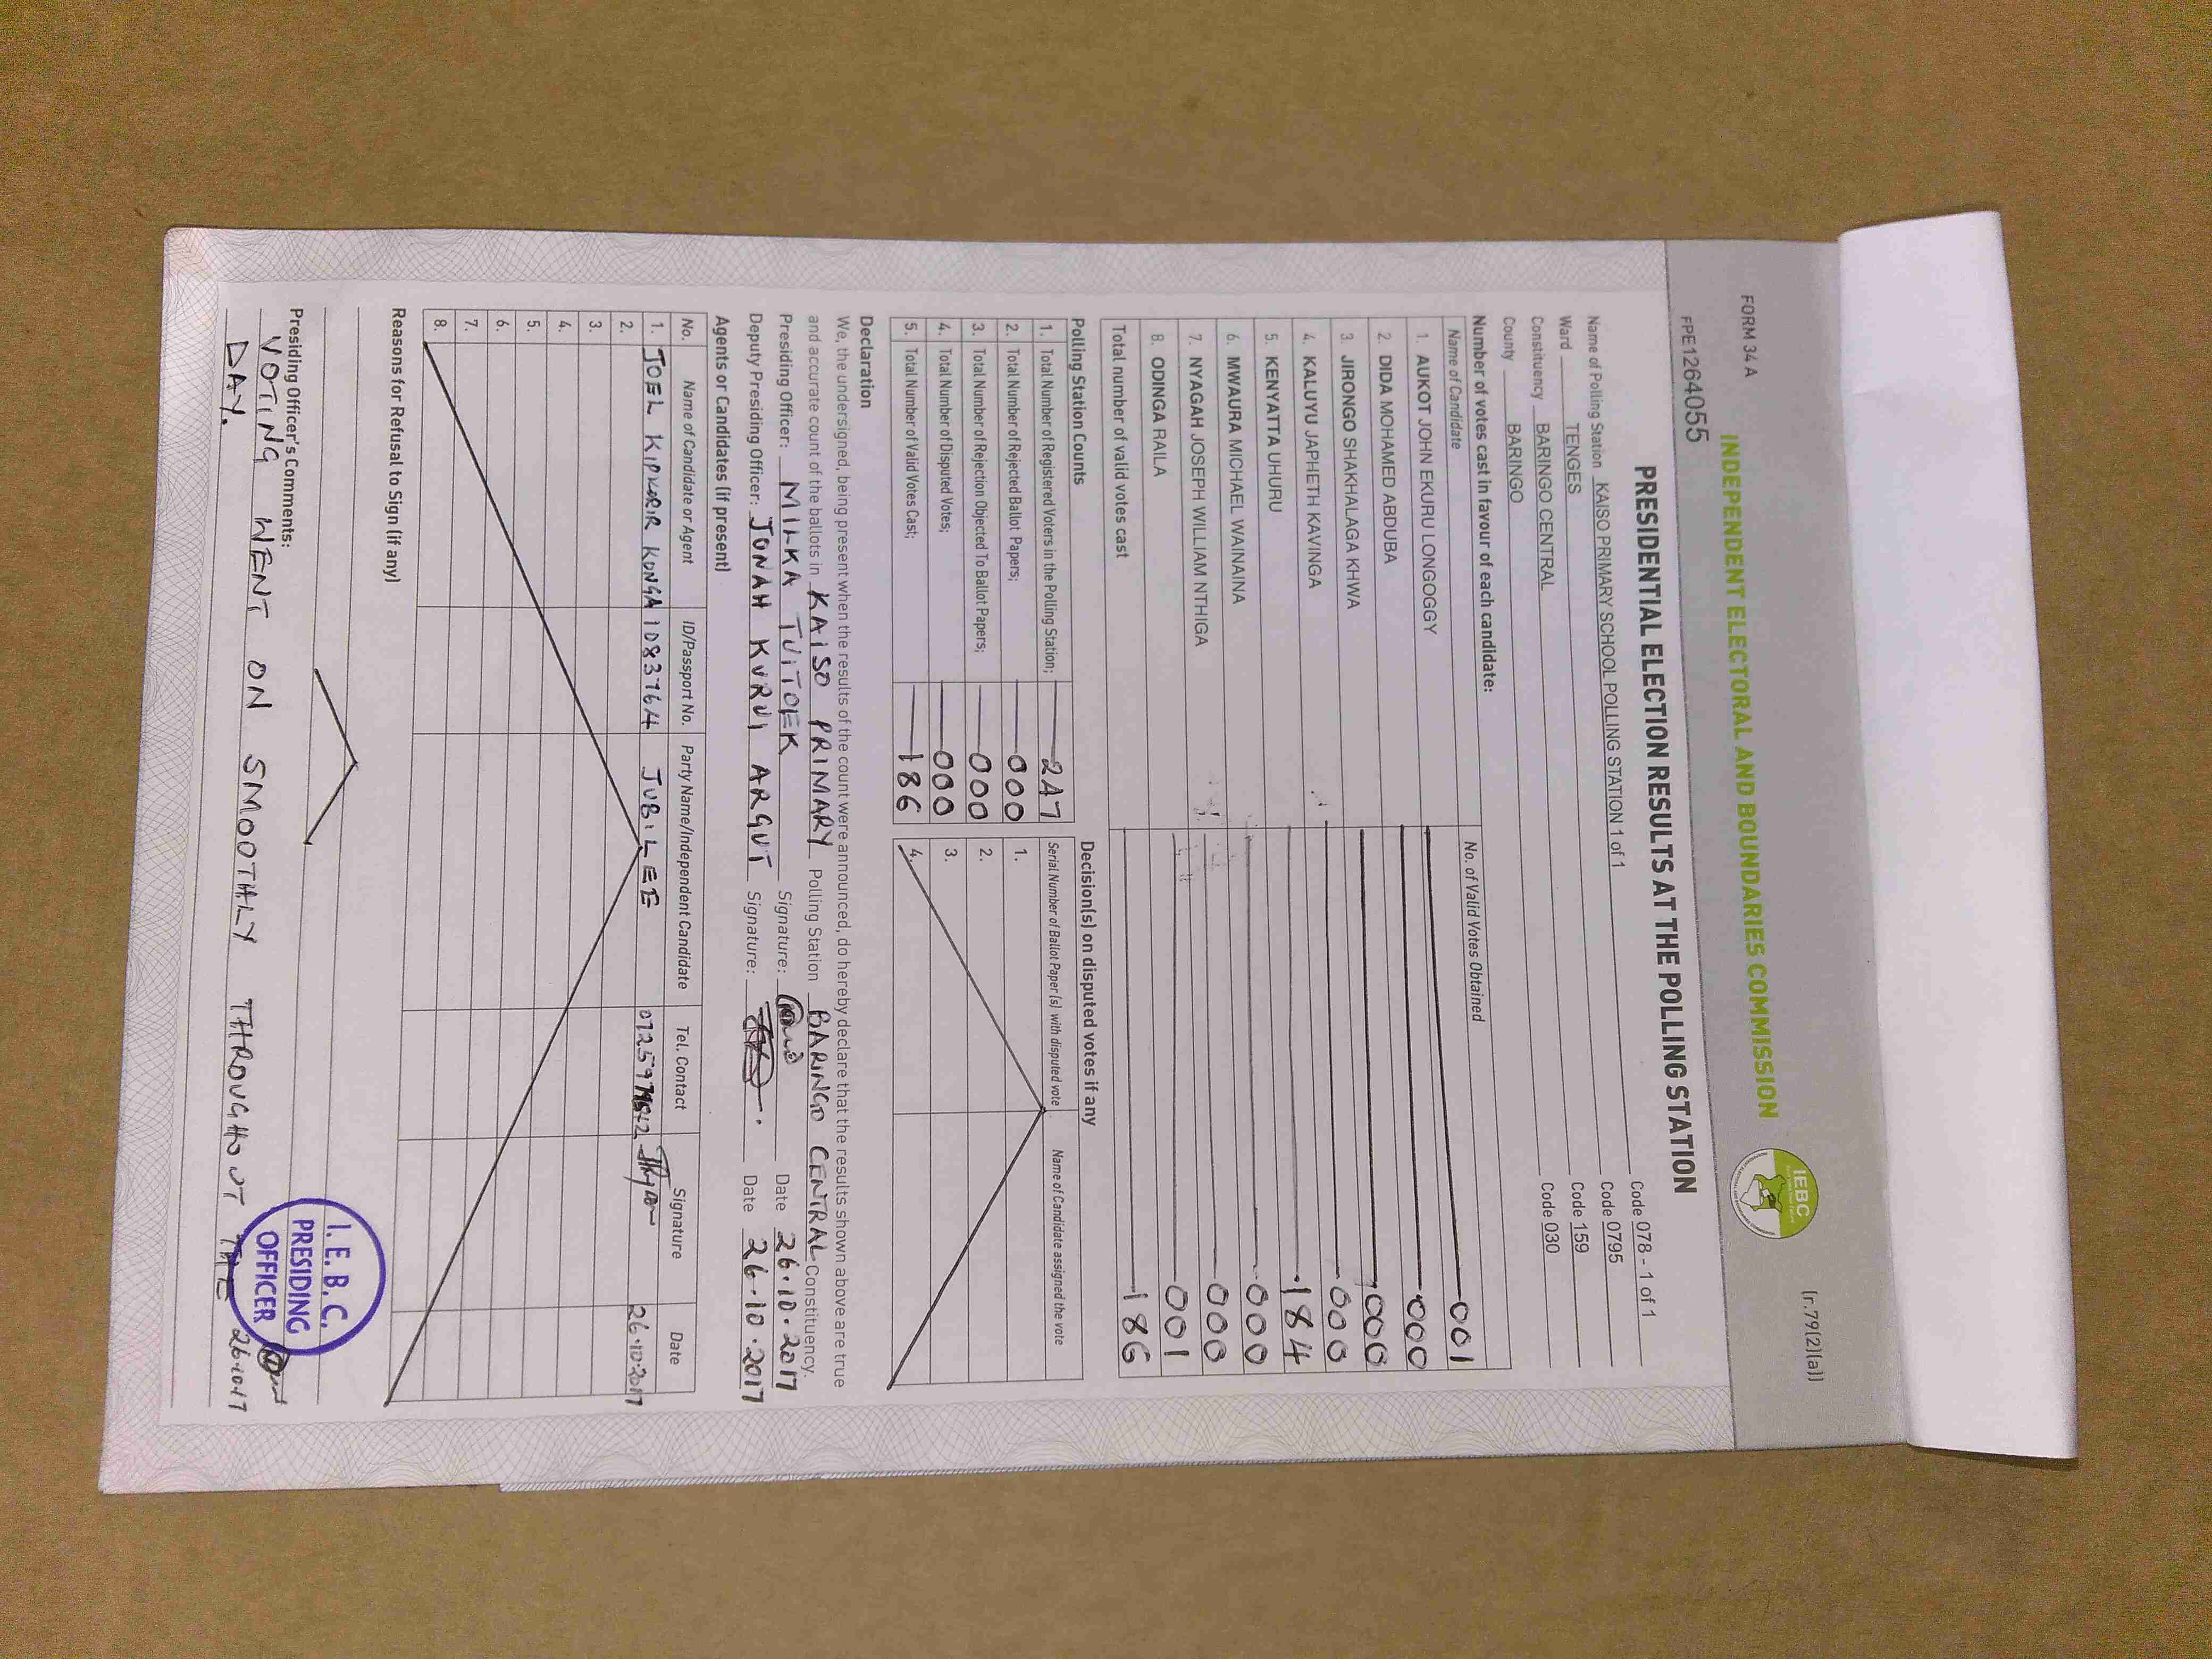 FORM 34 A
(r.79(2)(a))
INDEPENDENT ELECTORAL AND BOUNDARIES COMMISSION
IEBC
FPE1264055
PRESIDENTIAL ELECTION RESULTS AT THE POLLING STATION
Name of Polling Station KAISO PRIMARY SCHOOL POLLING STATION 1 of 1 Code 078 - 1 of 1
Ward TENGES Code 0795
Constituency BARINGO CENTRAL Code 159
County BARINGO Code 030
Number of votes cast in favour of each candidate:
Name of Candidate No. of Valid Votes Obtained
1. AUKOT JOHN EKURU LONGOGGY 001
2. DIDA MOHAMED ABDUBA 000
3 JIRONGO SHAKHALAGA KHWA 000
4. KALUYU JAPHETH KAVINGA 000
5. KENYATTA UHURU 184
6. MWAURA MICHAEL WAINAINA 000
7. NYAGAH JOSEPH WILLIAM NTHIGA 000
8. ODINGA RAILA 001
Total number of valid votes cast 186
Polling Station Counts
1. Total Number of Registered Voters in the Polling Station; 247
2. Total Number of Rejected Ballot Papers; 000
3. Total Number of Rejection Objected To Ballot Papers; 000
4. Total Number of Disputed Votes; 000
5. Total Number of Valid Votes Cast; 186
Decision(s) on disputed votes if any
Serial Number of Ballot Paper (s) with disputed vote Name of Candidate assigned the vote
1.
2.
3.
4.
Declaration
We, the undersigned, being present when the results of the count were announced, do hereby declare that the results shown above are true
and accurate count of the ballots in KAISO PRIMARY Polling Station BARINGO CENTRAL Constituency.
Presiding Officer: MILKA TUITOEK Signature: Date 26.10.2017
Deputy Presiding Officer: JONAH KURUI ARGUT Signature: Date 26.10.2017
Agents or Candidates (if present)
No. Name of Candidate or Agent ID/Passport No. Party Name/Independent Candidate Tel. Contact Signature Date
1. JOEL KIPKORIR KONGA 1083764 JUBILEE 26.10.2017
2.
3.
4.
5.
6.
7.
8.
Reasons for Refusal to Sign (if any)
Presiding Officer's Comments:
VOTING WENT ON SMOOTHLY THROUGHOUT THE
DAY.
26.10.17
I. E. B. C.
PRESIDING
OFFICER